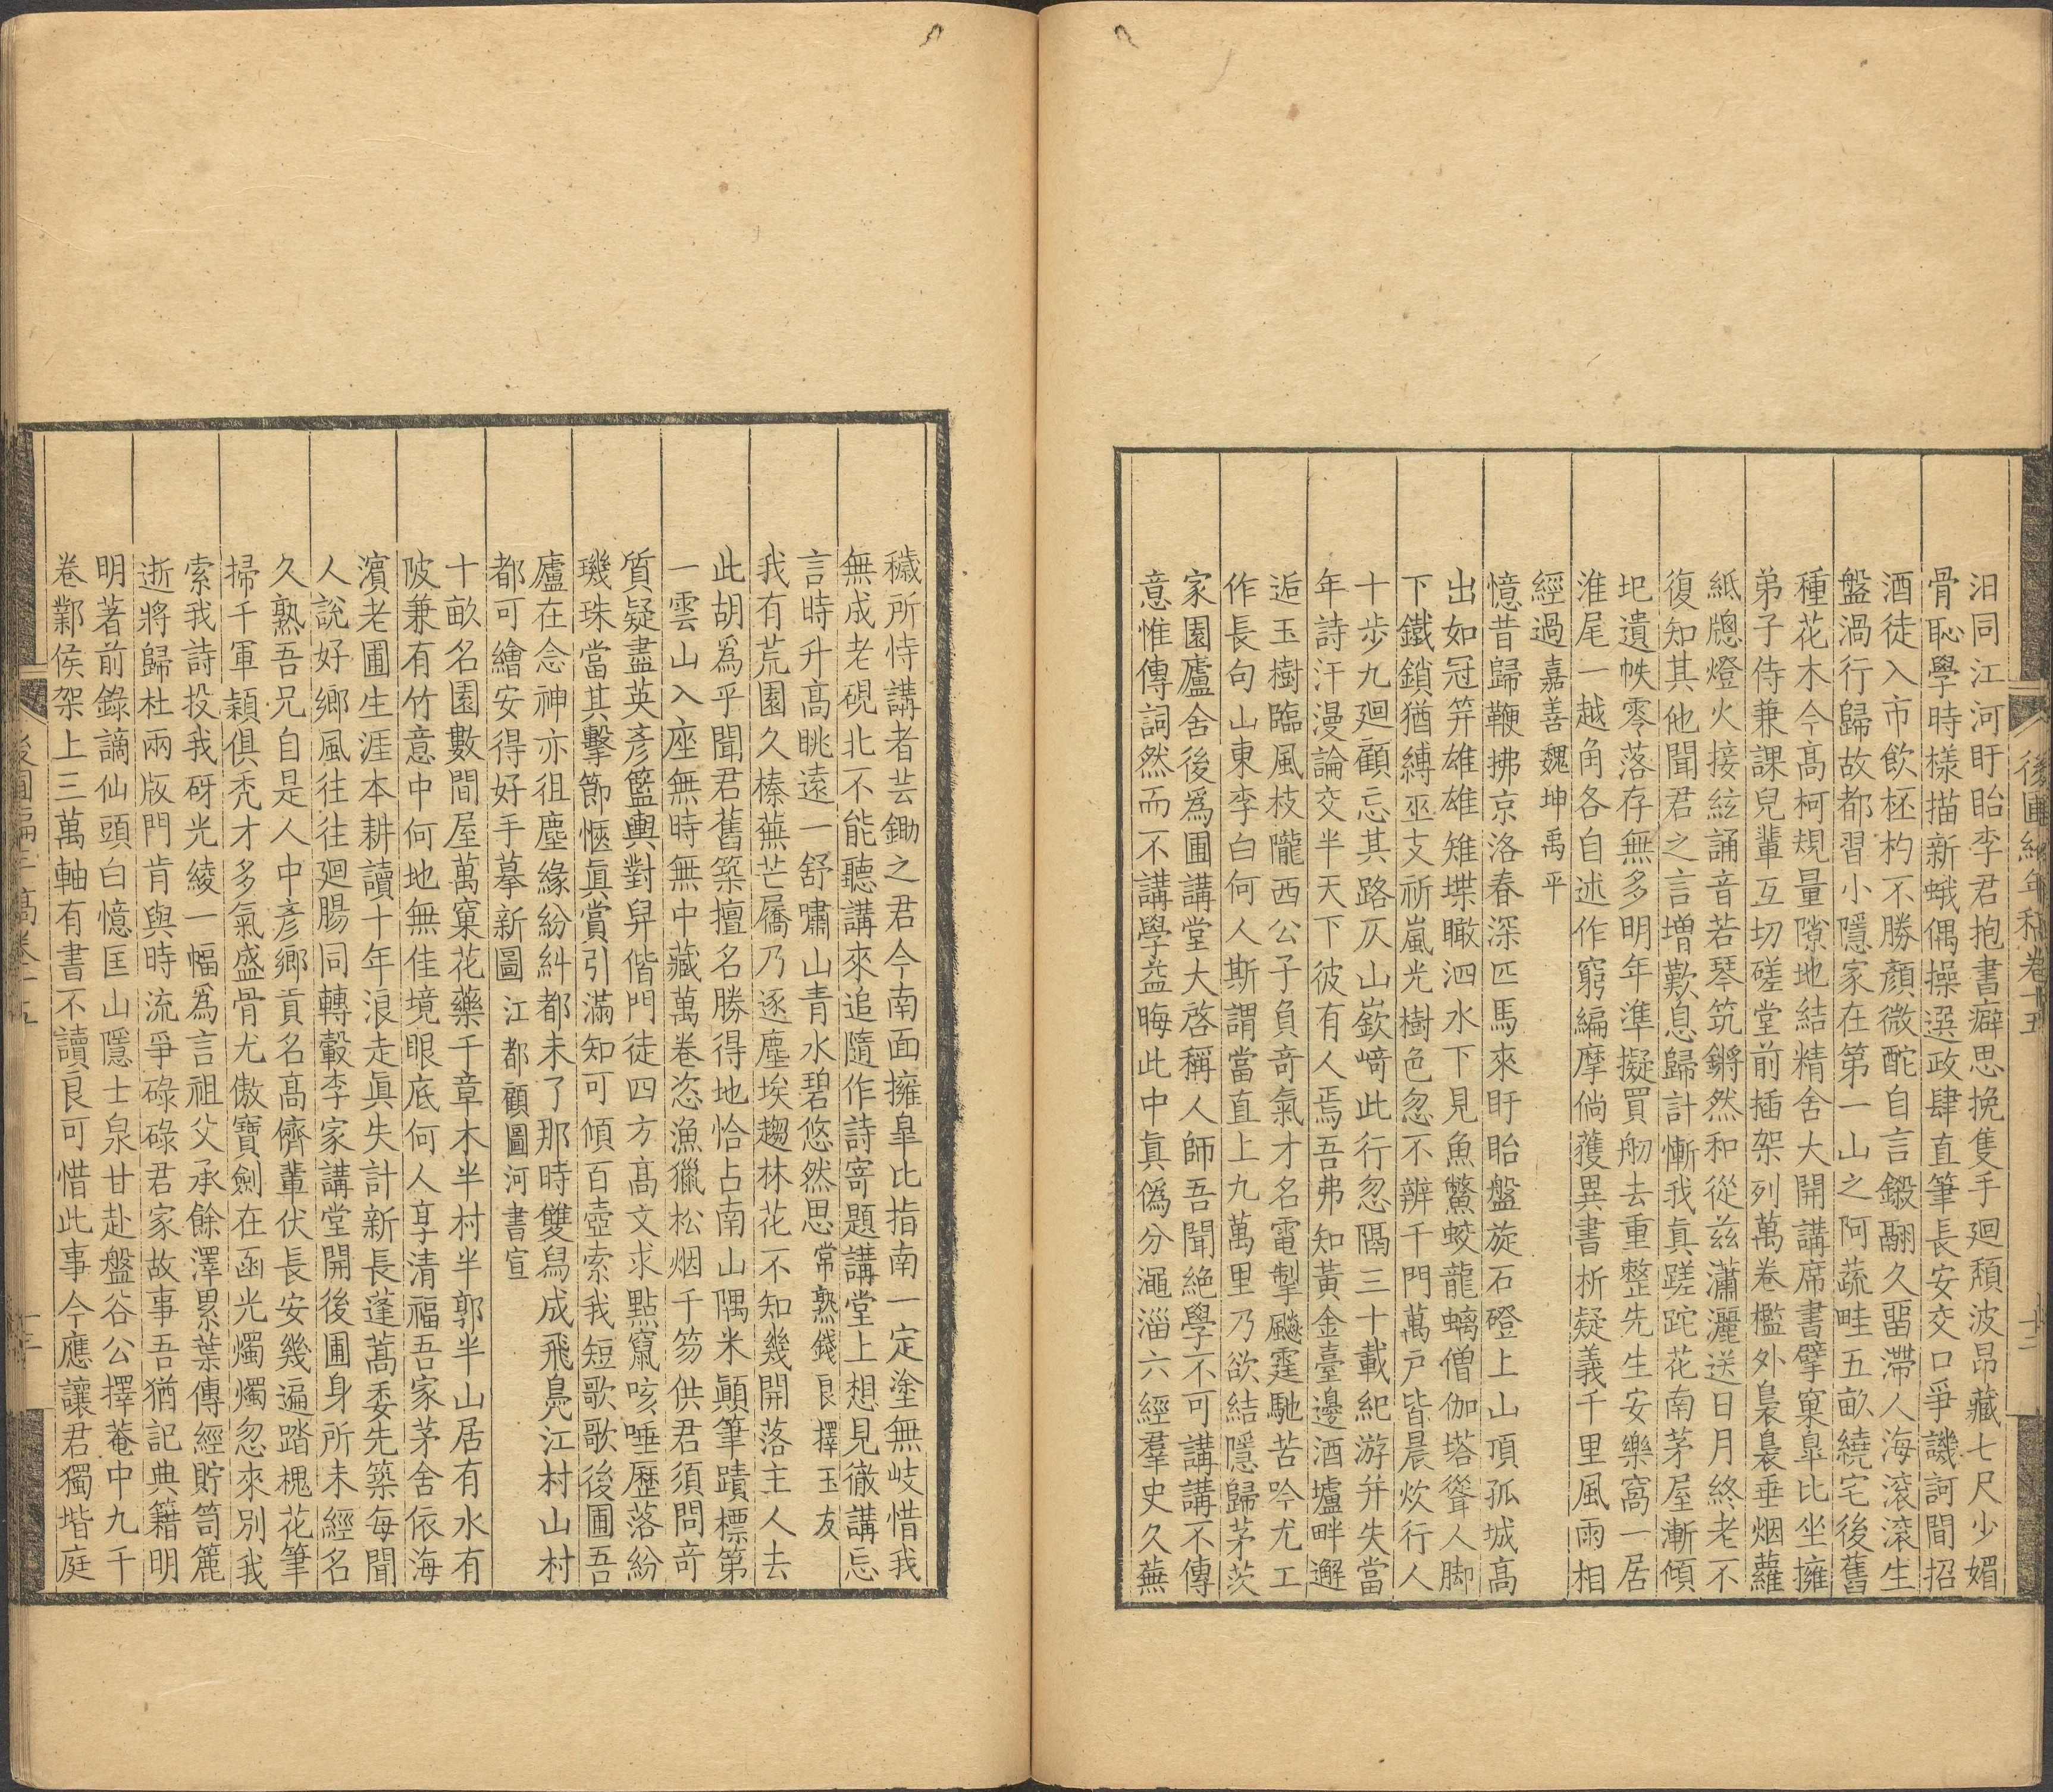 汨同江河盱眙李君抱書癖思挽隻手廻頹波昂藏七尺少媚
骨恥學時樣描新蛾偶操選政肆直筆長安交口爭譏訶間招
酒徒入市飲杯杓不勝顏微酡自言鎩翮久畱滯人海滾滾生
盤渦行歸故都習小隱家在第一山之阿蔬畦五畝繞宅後舊
種花木今高柯規量隙地結精舍大開講席書擘窠皐比坐擁
弟子侍兼課兒輩互切磋堂前插架列萬卷檻外裊裊垂烟蘿
紙牕燈火接絃誦音若琴筑鏘然和從兹瀟灑送日月終老不
復知其他聞君之言增歎息歸計慚我真蹉跎花南茅屋漸傾
圯遺帙零落存無多明年準擬買舠去重整先生安樂窩一居
淮尾一越角各自述作窮編摩倘獲異書析疑義千里風雨相
經過嘉善魏坤禹平
憶昔歸鞭拂京洛春深匹馬來盱眙盤旋石磴上山頂孤城高
出如冠笄雄雄雉堞瞰泗水下見魚鱉蛟龍螭僧伽塔聳人脚
下鐵鎖猶縛巫支祈嵐光樹色忽不辨千門萬戶皆晨炊行人
十步九廻顧忘其路仄山嶔﨑此行忽隔三十載紀游并失當
年詩汗漫論交半天下彼有人焉吾弗知黃金臺邊酒壚畔邂
逅玉樹臨風枝隴西公子負竒氣才名電掣飈霆馳苦吟尤工
作長句山東李白何人斯謂當直上九萬里乃欲結隱歸茅茨
家園廬舍後為圃講堂大啓稱人師吾聞絶學不可講講不傳
意惟傳詞然而不講學益晦此中真僞分澠淄六經羣史久蕪
後圃編年稿卷十五
十二
穢所恃講者芸鋤之君今南面擁皐比指南一定塗無岐惜我
無成老硯北不能聽講來追隨作詩寄題講堂上想見徹講忘
言時升高眺遠一舒嘯山青水碧悠然思常熟錢良擇玉友
我有荒園久榛蕪芒屩乃逐塵埃趨林花不知幾開落主人去
此胡爲乎聞君舊築擅名勝得地恰占南山隅米顛筆蹟標第
一雲山入座無時無中藏萬卷恣漁獵松烟千笏供君須問竒
質疑盡英彥籃輿對舁偕門徒四方高文求點竄咳唾歷落紛
璣珠當其擊節愜眞賞引滿知可傾百壺索我短歌歌後圃吾
廬在念神亦徂塵緣紛糾都未了那時雙舄成飛鳧江村山村
都可繪安得好手摹新圖江都顧圖河書宣
十畝名園數間屋萬窠花藥千章木半村半郭半山居有水有
陂兼有竹意中何地無佳境眼底何人享清福吾家茅舍依海
濵老圃生涯本耕讀十年浪走眞失計新長蓬蒿委先築每聞
人說好鄉風往往廻腸同轉轂李家講堂開後圃身所未經名
久熟吾兄自是人中彥鄉貢名高儕輩伏長安幾遍踏槐花筆
掃千軍穎俱禿才多氣盛骨尤傲寶劍在函光燭燭忽來別我
索我詩投我砑光綾一幅爲言祖父承餘澤累葉傳經貯笥簏
逝將歸杜兩版門肯與時流爭碌碌君家故事吾猶記典籍明
明著前錄謫仙頭白憶匡山隱士泉甘赴盤谷公擇菴中九千
卷鄴侯架上三萬軸有書不讀良可惜此事今應讓君獨堦庭